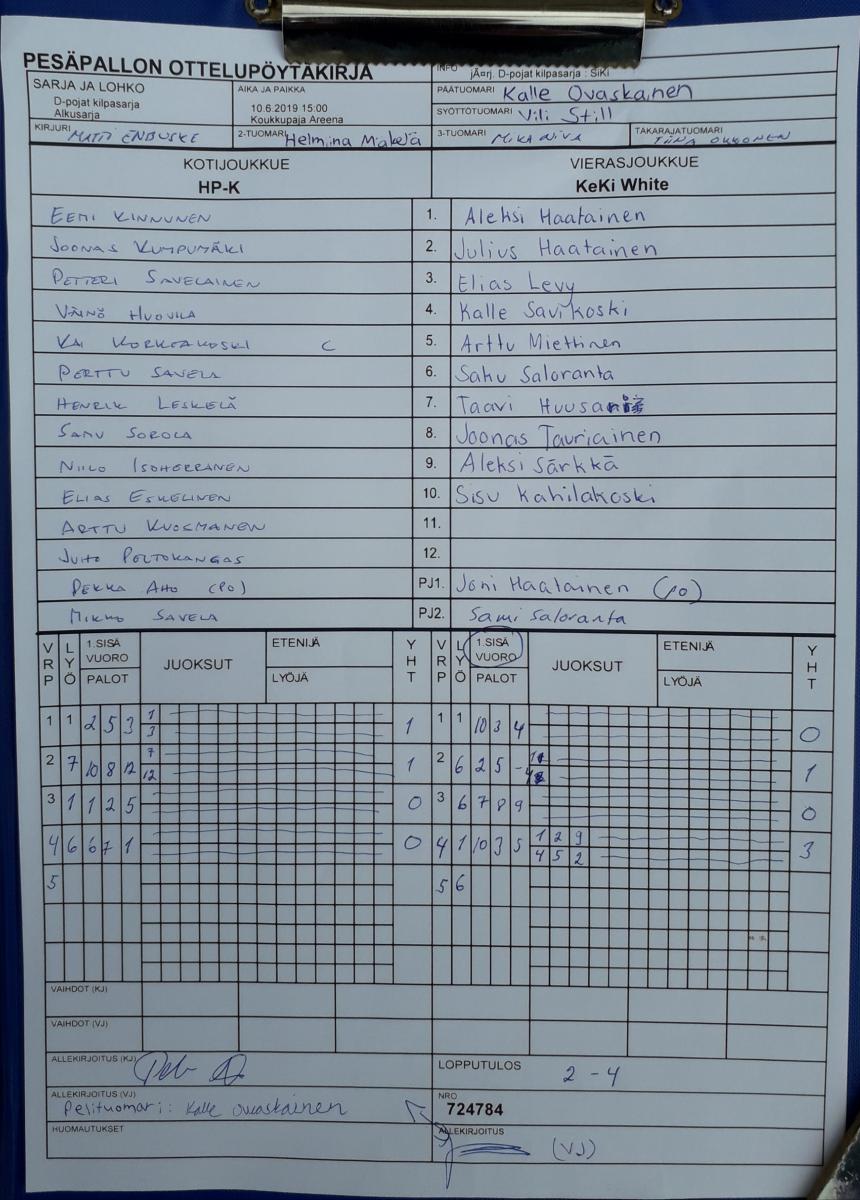 PESÄPALLON OTTELUPÖYTÄKIRJA
INFO jÃ¤rj. D-pojat kilpasarja : SiKi
SARJA JA LOHKO
D-pojat kilpasarja
Alkusarja
AIKA JA PAIKKA
10.6.2019 15:00
Koukkupaja Areena
PÄÄTUOMARI Kalle Ovaskainen
SYÖTTÖTUOMARI Vili Still
KIRJURI MATTI ENBUSKE
2-TUOMARI Helmiina Mäkelä
3-TUOMARI MIKA NIVA
TAKARAJATUOMARI TIINA OKKONEN
KOTIJOUKKUE
HP-K
VIERASJOUKKUE
KeKi White
EEMI KINNUNEN 1. Aleksi Haatainen
JOONAS KUMPUMÄKI 2. Julius Haatainen
PETTERI SAVELAINEN 3. Elias Levy
VÄINÖ HUOVILA 4. Kalle Savikoski
KAI KORKEAKOSKI C 5. Arttu Miettinen
PERTTU SAVELA 6. Saku Saloranta
HENRIK LESKELÄ 7. Taavi
SAMU SOROLA 8. Joonas Tauriainen
NIILO ISOHERRANEN 9. Aleksi Särkkä
ELIAS ESKELINEN 10. Sisu Kahilakoski
ARTTU KUOSMANEN 11.
JUHO PELTOKANGAS 12.
PEKKA AHO (PO) PJ1. Joni Haatainen (PO)
MIKKO SAVELA PJ2. Sami Saloranta
VRP LYÖ 1.SISÄ VUORO PALOT JUOKSUT ETENIJÄ LYÖJÄ YHT VRP LYÖ 1.SISÄ VUORO PALOT JUOKSUT ETENIJÄ LYÖJÄ YHT
1 1 2 5 3 1 3 1 1 1 10 3 4 0
2 7 10 8 12 7 12 1 2 6 2 5 - 1
3 1 1 2 5 0 3 6 7 8 9 0
4 6 6 7 1 0 4 1 10 3 5 1 2 9 4 5 2 3
5 5 6
VAIHDOT (KJ)
VAIHDOT (VJ)
ALLEKIRJOITUS (KJ)
LOPPUTULOS 2 - 4
ALLEKIRJOITUS (VJ)
Pelituomari: Kalle Ovaskainen
NRO
724784
HUOMAUTUKSET
ALLEKIRJOITUS
(VJ)